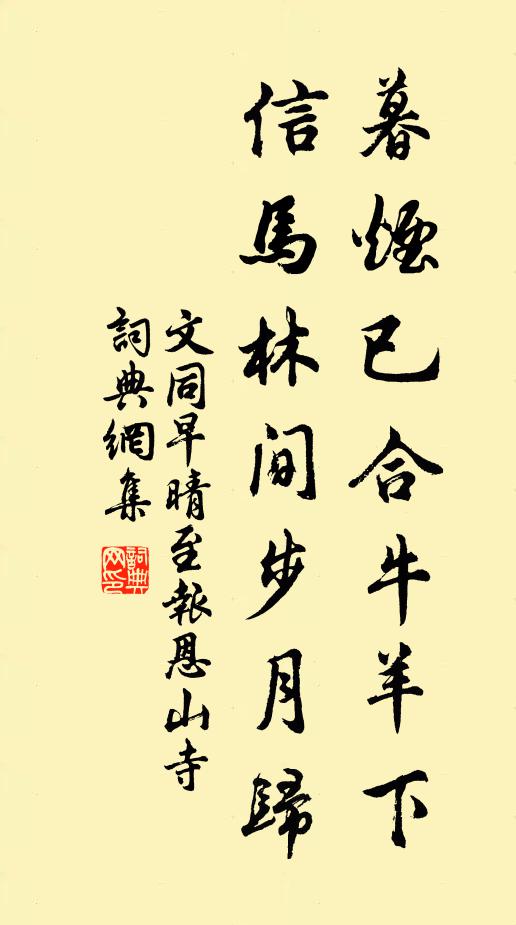 暮煙已合牛羊下
信馬林間步月歸
文同早晴至報恩山寺
詞典網集
詞典網印